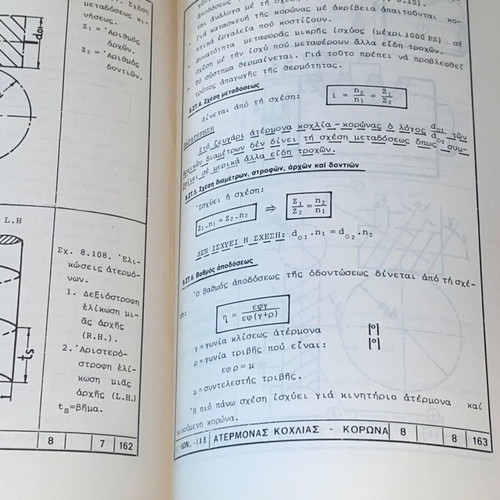 Σχέση
μεταδόσεως κι-
νήσεως.
Z₁ = Ἀριθμός
ἀρχῶν.
Z₂ = Ἀριθμός
ὀδοντιῶν.
L.H
Σχ. 8.108. Ἑλι-
κώσεις ἀτερμό-
νων.
1. Δεξιόστροφη
ἑλίκωση μι-
ᾶς ἀρχῆς
(R.H.).
2. Ἀριστερό-
στροφη ἑλί-
κωση μιᾶς
ἀρχῆς (L.H.)
ts=βῆμα.
8 7 162
ἀποδόσεως
ἀνάλογα μέ τή
Γιά κατασκευή τῆς κορώνας μέ ἀκρίβεια ἀπαιτοῦνται κο-
πτικά ἐργαλεῖα πού κοστίζουν.
δυνατότητα μεταφορᾶς μικρῆς ἰσχύος (μέχρι 1000 PS) σέ
σχέση μέ τήν ἰσχύ πού μεταφέρουν ἄλλα εἴδη τροχῶν.
Τό σύστημα θερμαίνεται. Γιά τοῦτο πρέπει νά προβλεφθεῖ
τρόπος ἀπαγωγῆς τῆς θερμότητας.
8.ΣΤ.4. Σχέση μεταδόσεως
δίνεται ἀπό τή σχέση: i = n₂/n₁ = Z₁/Z₂
ΠΑΡΑΤΗΡΗΣΗ
Στό ζευγάρι ἀτέρμονα κοχλία - κορώνας ὁ λόγος do1/do2 τῶν
ἀρχικῶν διαμέτρων δέν δίνει τή σχέση μεταδόσεως ὅπως συμ-
βαίνει σέ μερικά ἄλλα εἴδη τροχῶν.
8.ΣΤ.5. Σχέση διαμέτρων, στροφῶν, ἀρχῶν καί δοντιῶν
Ἰσχύει ἡ σχέση:
Z₁.n₁ = Z₂.n₂ ⇒ Z₁/Z₂ = n₂/n₁
ΔΕΝ ΙΣΧΥΕΙ Η ΣΧΕΣΗ: do1.n₁ = do2.n₂
8.ΣΤ.6. Βαθμός ἀποδόσεως
Ὁ βαθμός ἀποδόσεως τῆς ὀδοντώσεως δίνεται ἀπό τή σχέ-
ση:
η = εφγ/εφ(γ+ρ)
γ = γωνία κλίσεως ἀτέρμονα |°|
ρ = γωνία τριβῆς πού εἶναι: |°|
εφρ = μ
μ = συντελεστής τριβῆς.
Ἡ πιό πάνω σχέση ἰσχύει γιά κινητήριο ἀτέρμονα καί
κινούμενη κορώνα.
ΑΤΕΡΜΟΝΑΣ ΚΟΧΛΙΑΣ - ΚΟΡΩΝΑ 8 8 163